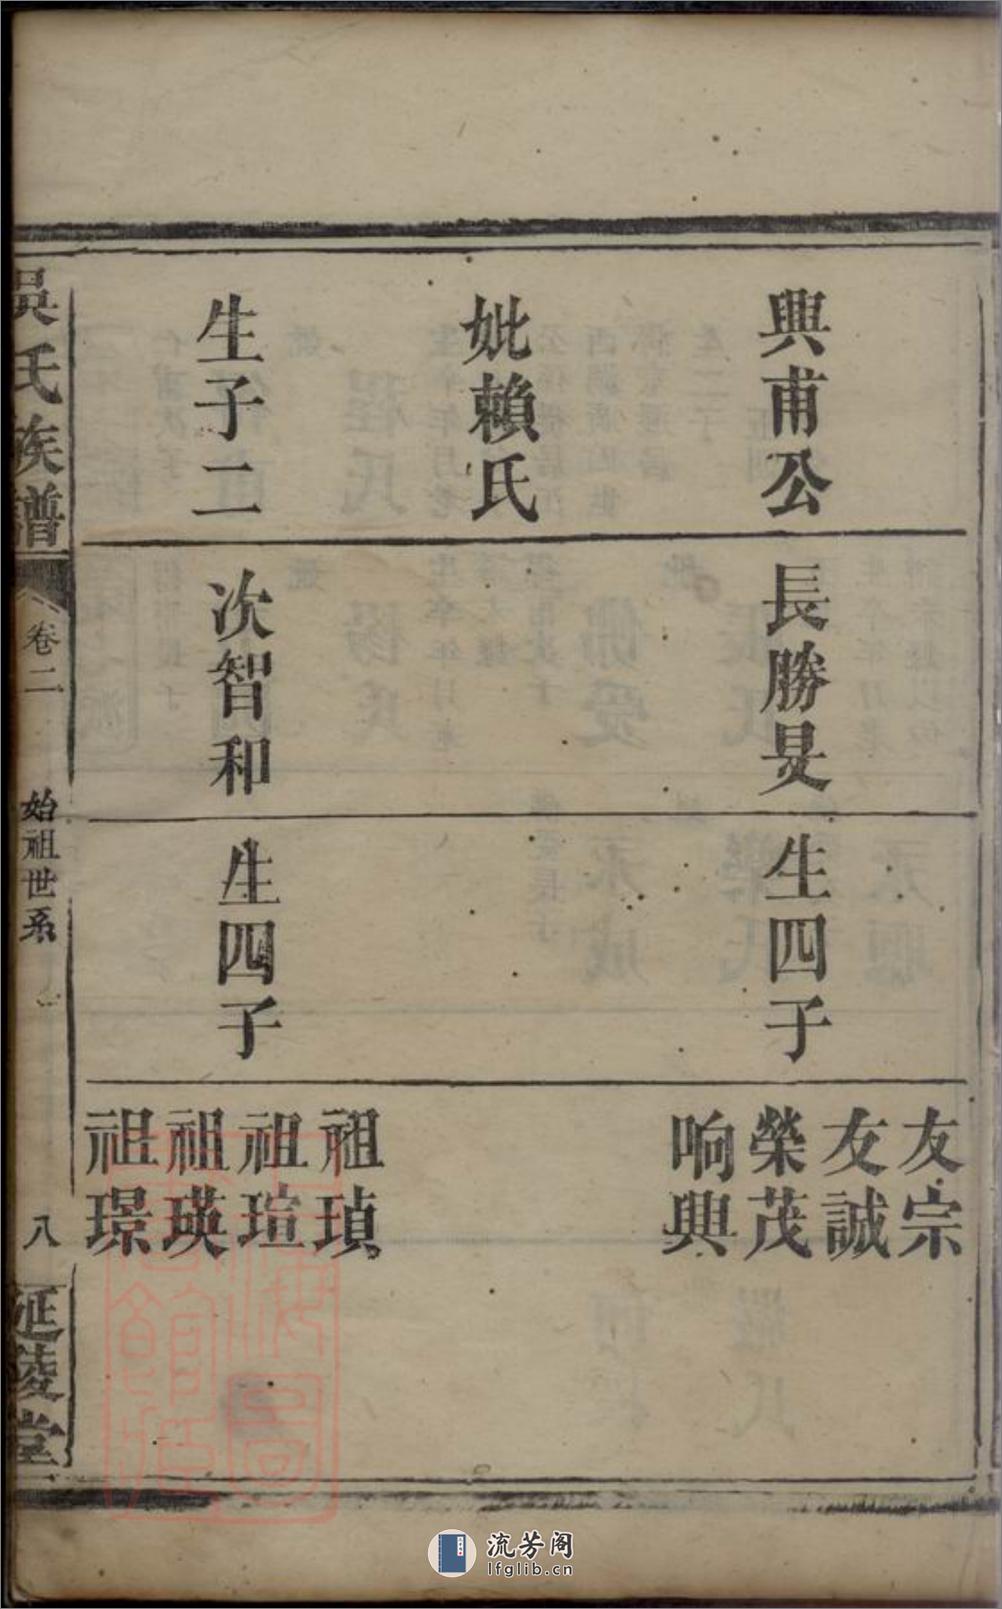 興甫公
妣賴氏
生子二
長勝旻
次智和
生四子
生四子
友宗
友誠
榮茂
响興
祖瑱
祖瑄
祖瑛
祖璟
吳氏族譜
卷二
始祖世系
八
延陵堂
流芳阁
lfglib.cn